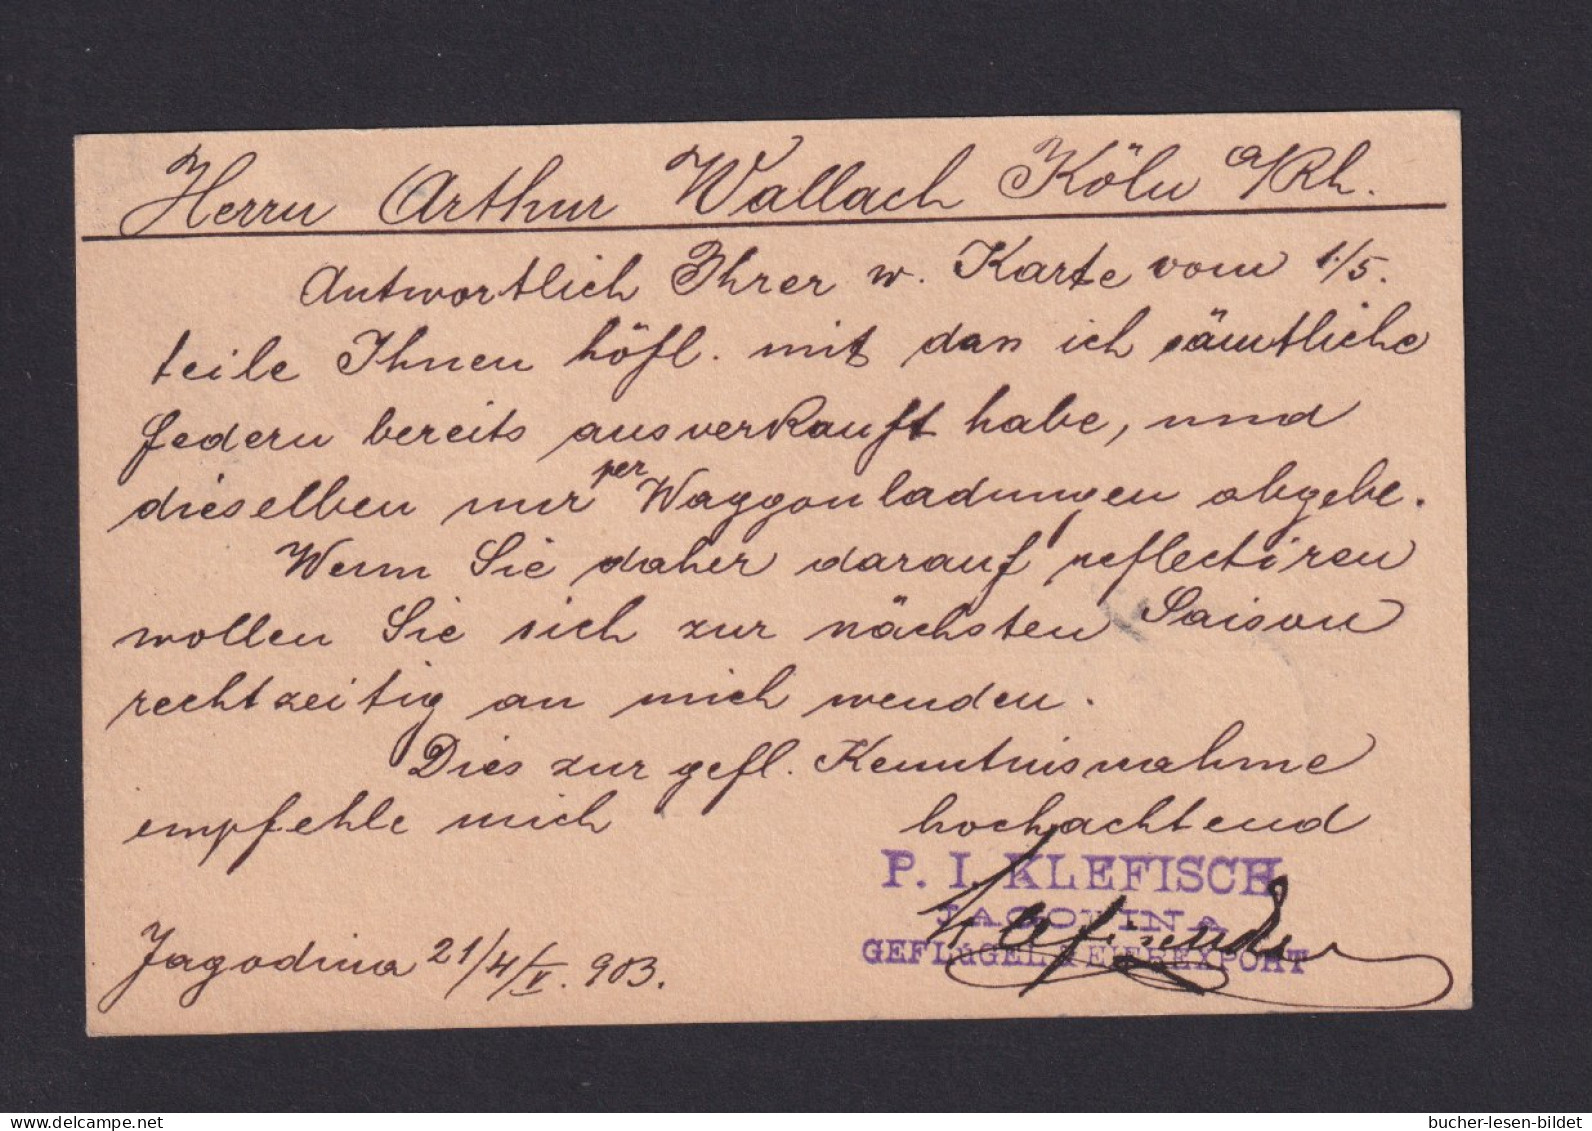 Herrn Arthur Wallach Köln a/Rh.
Antwortlich Ihrer w. Karte vom 1./5.
teile Ihnen höfl. mit dan ich sämtliche
Federn bereits ausverkauft habe, und
dieselben nur per Waggonladungen abgebe.
Wenn Sie daher darauf reflectiren
wollen Sie sich zur nächsten Saison
rechtzeitig an mich wenden.
Dies zur gefl. Kenntnisnahme
empfehle mich hochachtend
P. I. KLEFISCH
JAGODINA
GEFLüGEL & EIEREXPORT
Jagodina 21/4/V. 903.
delcampe.net
bucher-lesen-bildet